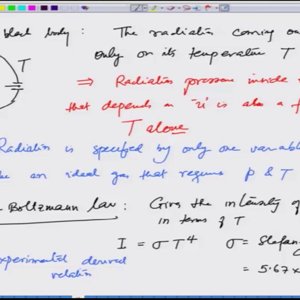 black body : The radiation coming ou
only on its temperature T
T
⇒ Radiation pressure inside
that depends on 'u' is also a f
T alone
Radiation is specified by only one variabl
an ideal gas that requires p & T
Boltzmann law : Gives the intensity of
in terms of T
I = σ T⁴ σ = Stefan
experimental derived = 5.67 x
relation